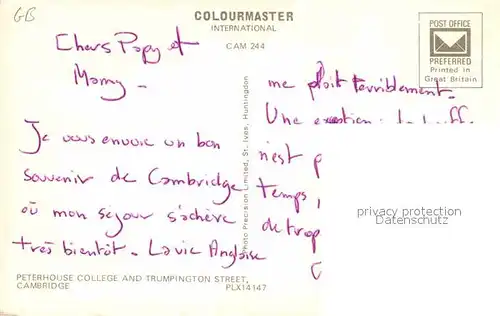 GB
COLOURMASTER
INTERNATIONAL
CAM 244
POST OFFICE
PREFERRED
Printed in
Great Britain
Chers Papy et
Mamy -
Je vous envoie un bon
souvenir de Cambridge
où mon séjour s'achève
très bientôt. La vie Anglaise
Photo Precision Limited, St. Ives, Huntingdon
me plait terriblement.
Une exception :
n'est p
temps,
de trop
privacy protection
Datenschutz
PETERHOUSE COLLEGE AND TRUMPINGTON STREET,
CAMBRIDGE
PLX14147